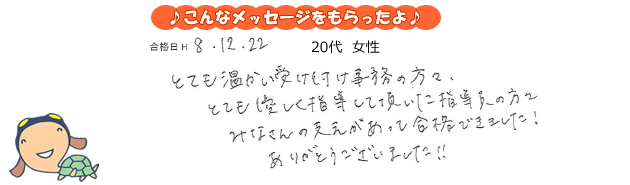 ♪こんなメッセージをもらったよ♪
合格日 H 8.12.22 20代 女性
とても温かい受け付け事務の方々、
とても優しく指導して頂いた指導員の方々
みなさんの支えがあって合格できました!
ありがとうございました!!